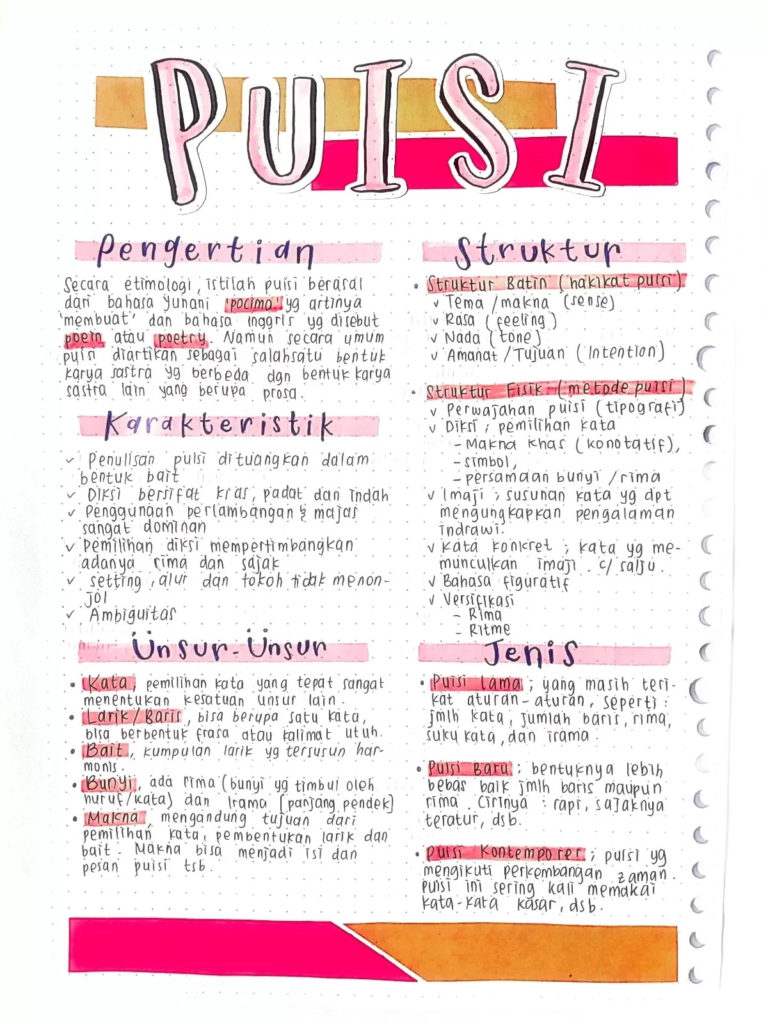 PUISI
Pengertian
Secara etimologi, istilah puisi berasal
dari bahasa Yunani 'pocima' yg artinya
'membuat' dan bahasa Inggris yg disebut
poein atau poetry. Namun secara umum
puisi diartikan sebagai salahsatu bentuk
karya sastra yg berbeda dgn bentuk karya
sastra lain yang berupa prosa.
Karakteristik
✓ Penulisan puisi dituangkan dalam
bentuk bait
✓ Diksi bersifat kias, padat dan indah
✓ Penggunaan perlambangan & majas
sangat dominan
✓ Pemilihan diksi mempertimbangkan
adanya rima dan sajak
✓ setting, alur dan tokoh tidak menon-
jol
✓ Ambiguitas
Unsur-Unsur
• Kata, pemilihan kata yang tepat sangat
menentukan kesatuan unsur lain.
• Larik/Baris, bisa berupa satu kata,
bisa berbentuk frasa atau kalimat utuh.
• Bait, kumpulan larik yg tersusun har-
monis.
• Bunyi, ada rima (bunyi yg timbul oleh
huruf/kata) dan irama [panjang pendek]
• Makna, mengandung tujuan dari
pemilihan kata, pembentukan larik dan
bait. Makna bisa menjadi isi dan
pesan puisi tsb.
Struktur
• Struktur Batin (hakikat puisi)
✓ Tema/makna (sense)
✓ Rasa (feeling)
✓ Nada (tone)
✓ Amanat/Tujuan (Intention)
• Struktur Fisik (metode puisi)
✓ Perwajahan puisi (tipografi)
✓ Diksi ; pemilihan kata
- Makna khas (konotatif),
- simbol,
- persamaan bunyi/rima
✓ Imaji ; susunan kata yg dpt
mengungkapkan pengalaman
indrawi.
✓ Kata konkret ; kata yg me-
munculkan imaji. c/ salju.
✓ Bahasa figuratif
✓ Versifikasi
- Rima
- Ritme
Jenis
• Puisi lama ; yang masih teri-
kat aturan-aturan, seperti :
jmlh kata, jumlah baris, rima,
suku kata, dan irama.
• Puisi Baru ; bentuknya lebih
bebas baik jmlh baris maupun
rima. Cirinya : rapi, sajaknya
teratur, dsb.
• Puisi Kontemporer ; puisi yg
mengikuti perkembangan zaman.
Puisi ini sering kali memakai
kata-kata kasar, dsb.